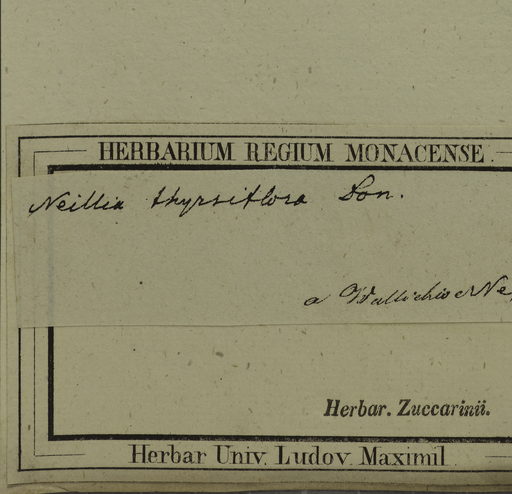 HERBARIUM REGIUM MONACENSE
Neillia thyrsiflora Don.
a Wallichio
Herbar. Zuccarinii.
Herbar Univ. Ludov. Maximil